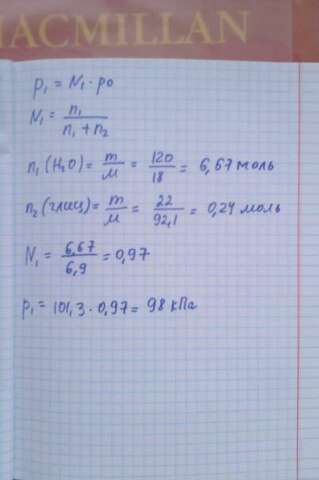 MACMILLAN
p₁ = N₁ · p₀
N₁ = n₁ / (n₁ + n₂)
n₁ (H₂O) = m/M = 120/18 = 6,67 моль
n₂ (глиц) = m/M = 22/92,1 = 0,24 моль
N₁ = 6,67/6,9 = 0,97
p₁ = 101,3 · 0,97 = 98 кПа